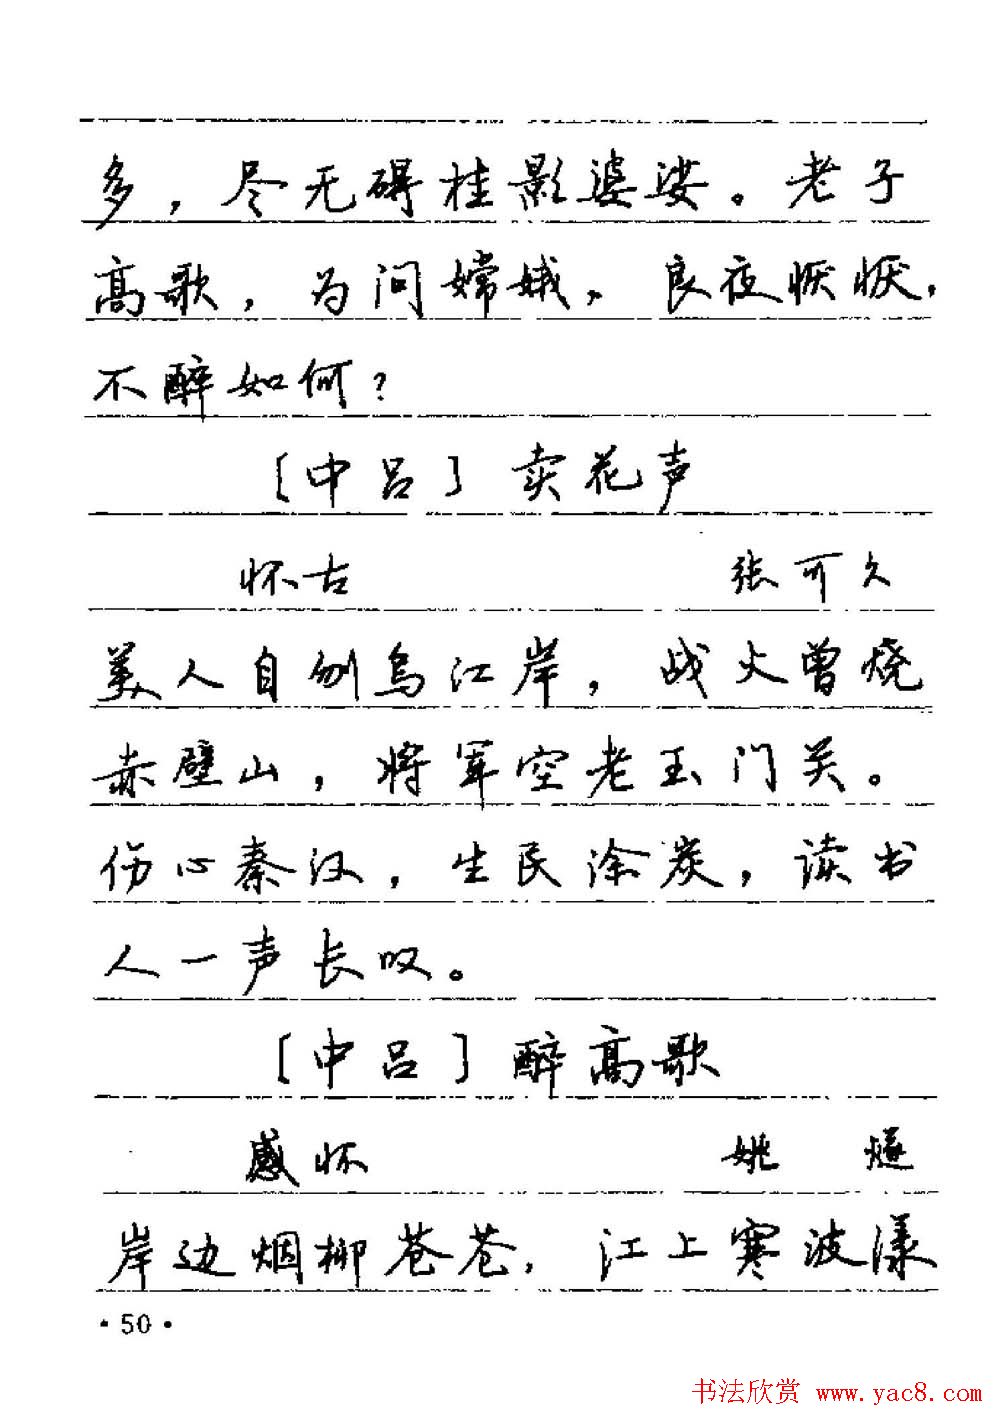 多，尽无碍桂影婆娑。老子
高歌，为问嫦娥，良夜恹恹，
不醉如何？
［中吕］卖花声
怀古 张可久
美人自刎乌江岸，战火曾烧
赤壁山，将军空老玉门关。
伤心秦汉，生民涂炭，读书
人一声长叹。
［中吕］醉高歌
感怀 姚燧
岸边烟柳苍苍，江上寒波漾
·50·
书法欣赏 www.yac8.com